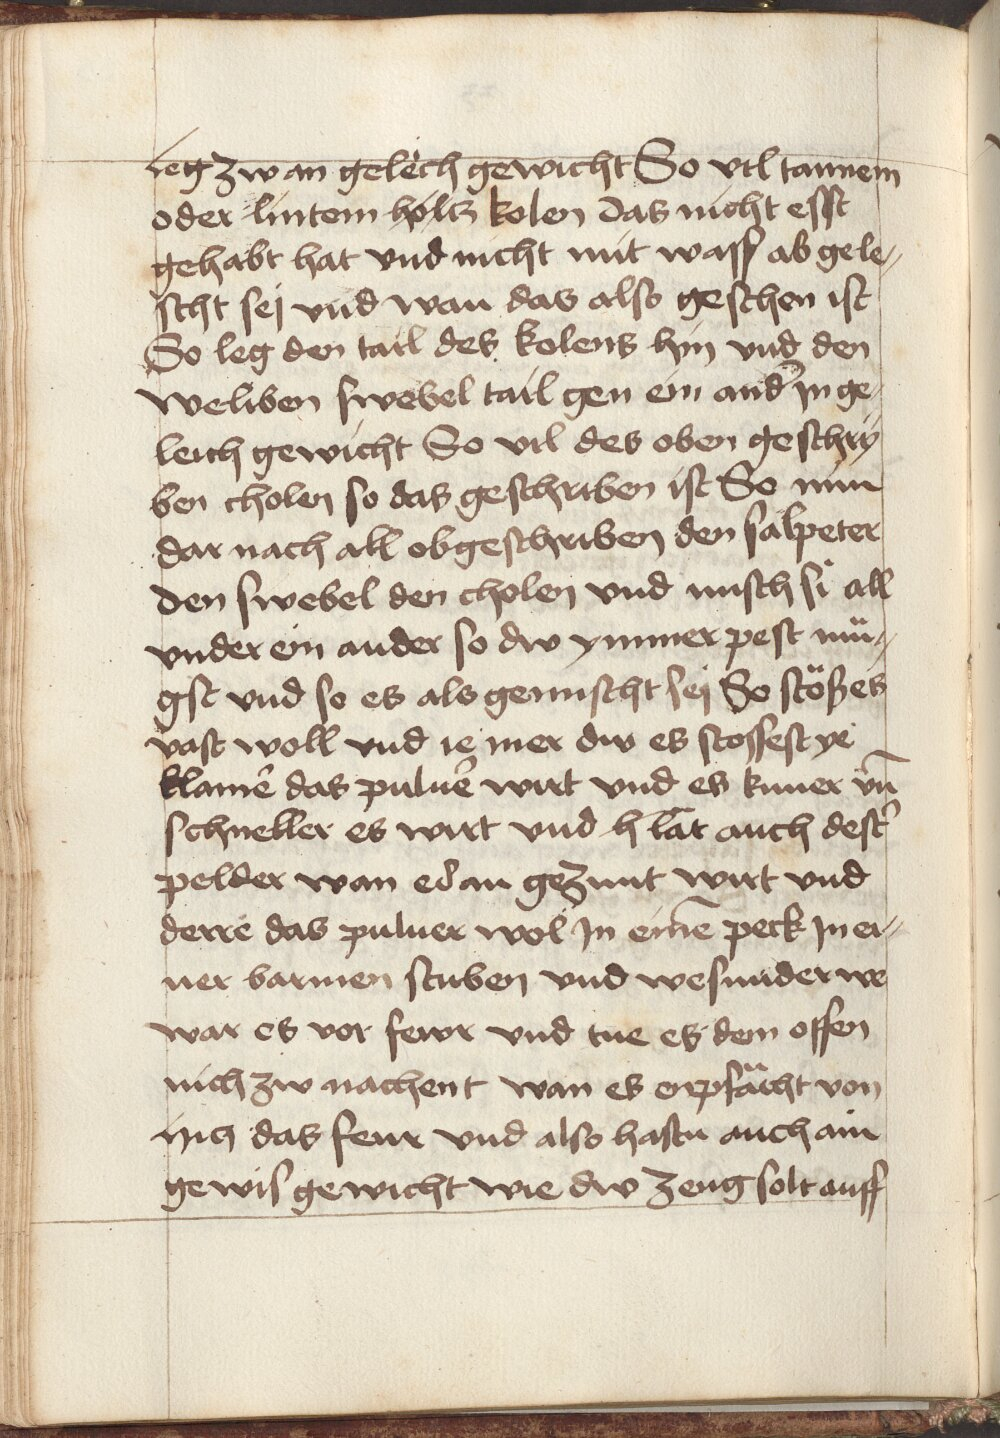 leg zw an gelëch gewicht So vil tannem
oder lintem holcz kolen Das nicht esst
gehabt hat vnd nicht mit wass ab gele-
scht sej vnd wan das also geschen ist
So leg den tail des kolens hin vnd den
weliben swebel tail gen ein and' In ge-
leich gewicht So vil des oben geschrij
ben cholen so das geschriben ist So nim
dar nach all obgeschriben den salpeter
den swebel den cholen vnd misch si all
vnder ein ander so dw ymmer pest mü-
gst vnd so es als gemischt sej So stöß es
vast woll vnd ie mer dw es stossest ye
klaine' das pulue' wirt vnd es kuner vn̄
schneller es wirt vnd h lat auch dest'
pelder wan er an gezunt wirt vnd
derre das puluer wol In eine peck In ei-
ner barmen stuben vnd wesunder we
war es vor fewr vnd tue es dem offen
nich zw nachent wan es enpfächt von
hicz das feur vnd also hastu auch ain
gewis gewicht wie dw zeug solt auff